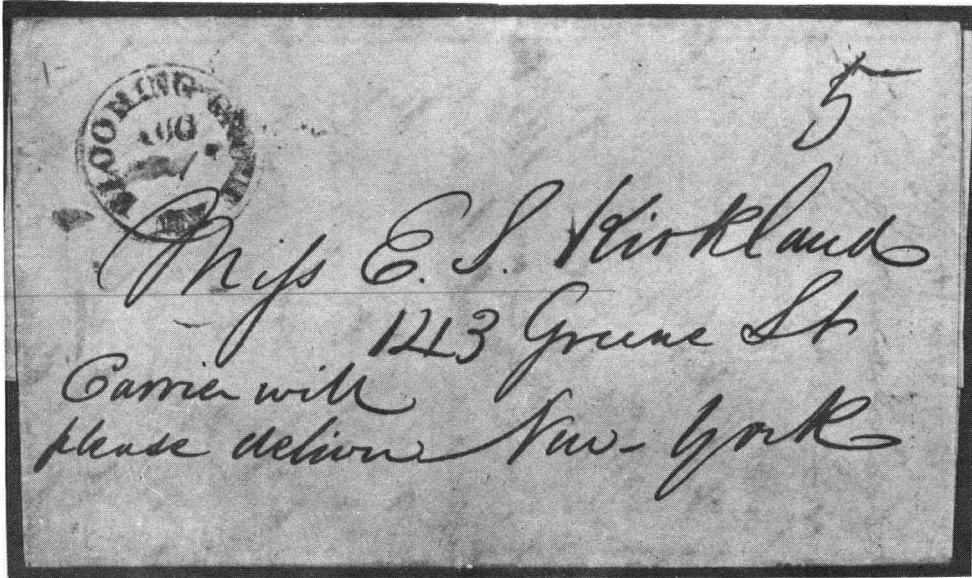 BLOOMING-GROVE
AUG
5
Miss E. S. Kirkland
143 Greene St
Carrier will
please deliver New-York